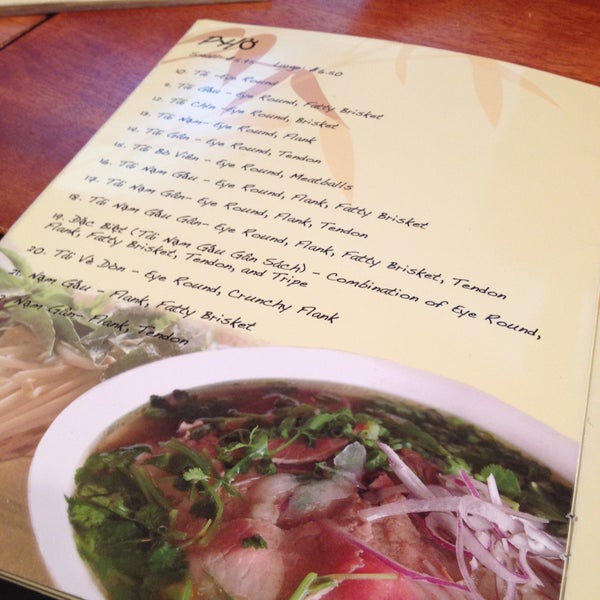 PHỞ
Large: $6.50
10. Tái - Eye Round
11. Tái Gầu - Eye Round, Fatty Brisket
12. Tái Chín - Eye Round, Brisket
13. Tái Nạm - Eye Round, Flank
14. Tái Gân - Eye Round, Tendon
15. Tái Bò Viên - Eye Round, Meatballs
16. Tái Nạm Gầu - Eye Round, Flank, Fatty Brisket
17. Tái Nạm Gân - Eye Round, Flank, Tendon
18. Tái Nạm Gầu Gân - Eye Round, Flank, Fatty Brisket, Tendon
19. Đặc Biệt (Tái Nạm Gầu Gân Sách) - Combination of Eye Round,
Flank, Fatty Brisket, Tendon, and Tripe
20. Tái Vè Dòn - Eye Round, Crunchy Flank
21. Nạm Gầu - Flank, Fatty Brisket
Nạm Gân - Flank, Tendon